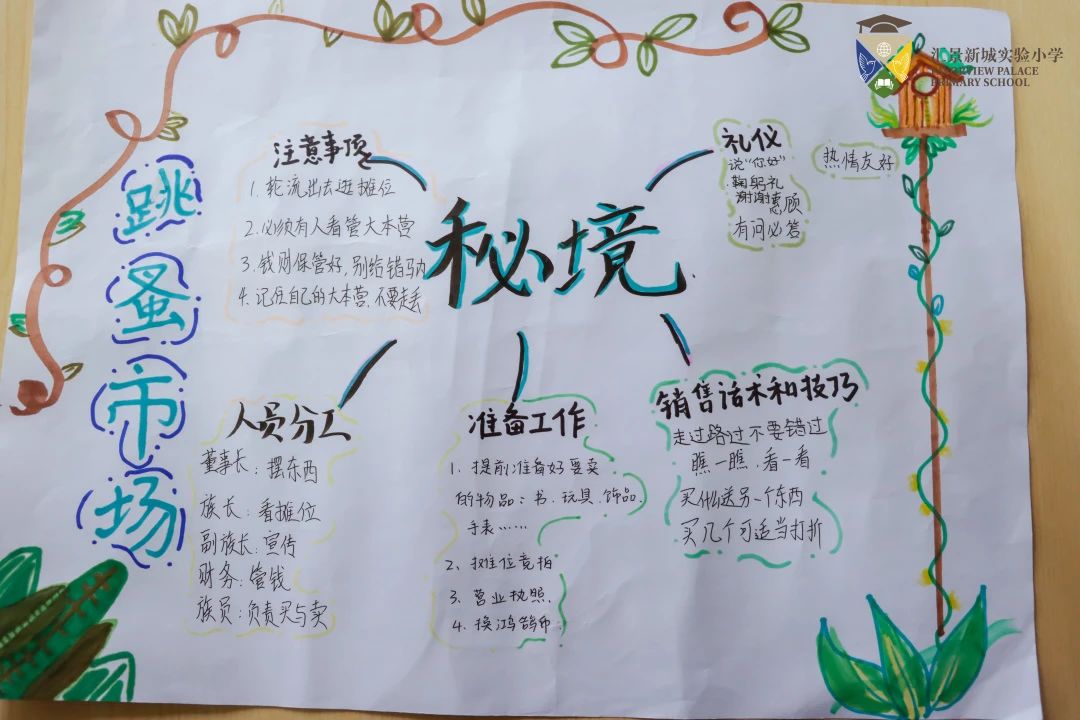 汇景新城实验小学
PRIMARY SCHOOL
跳蚤市场
秘境
注意事项
1. 轮流出去逛摊位
2. 必须有人看管大本营
3. 钱财保管好,别给错马内
4. 记住自己的大本营,不要走丢
礼仪
说“你好”
鞠躬礼
谢谢惠顾
有问必答
热情友好
人员分工
董事长:摆东西
族长:看摊位
副族长:宣传
财务:管钱
族员:负责买与卖
准备工作
1、提前准备好要卖
的物品:书、玩具、饰品、
手表……
2、摊位竞拍
3、营业执照
4、换鸿鹄币
销售话术和技巧
走过路过不要错过
瞧一瞧,看一看
买什么送另一个东西
买几个可适当打折